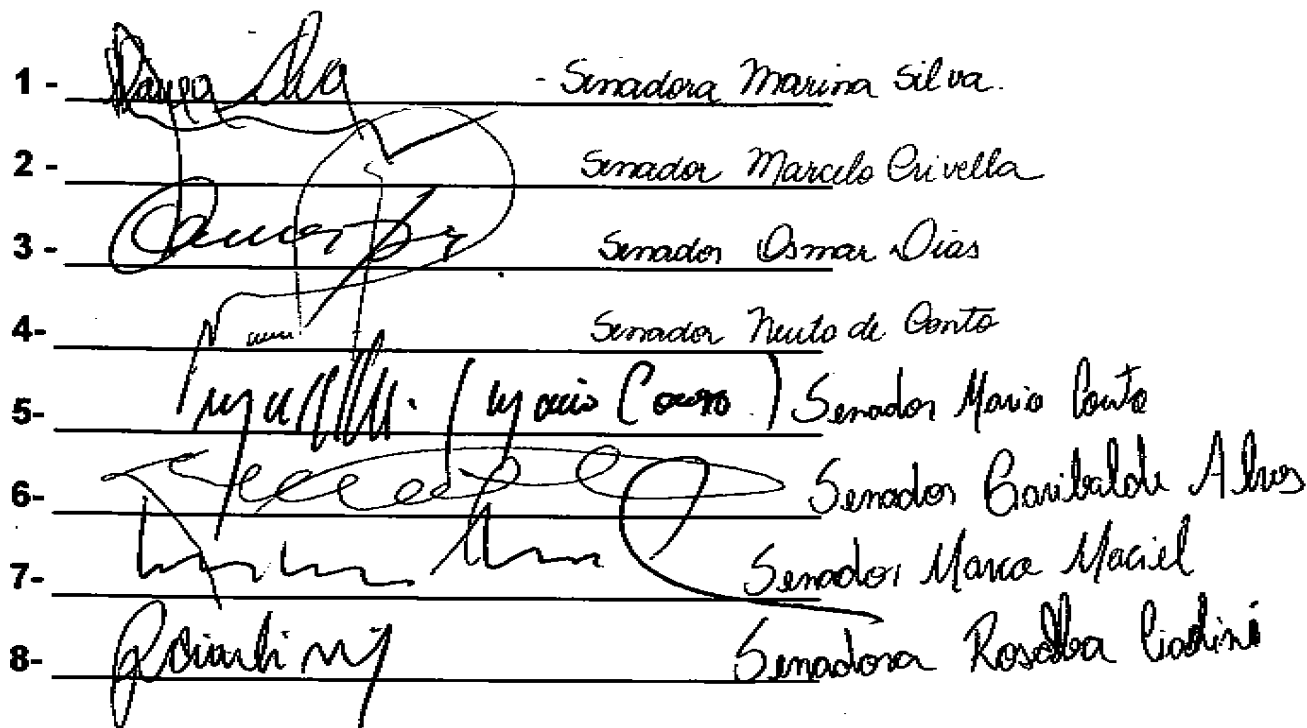 1 - - Senadora Marina Silva.
2 - Senador Marcelo Crivella
3 - Senador Osmar Dias
4- Senador Neuto de Conto
5- (Mario Couto) Senador Mario Couto
6- Senador Garibalde Alves
7- Senador Marco Maciel
8- Senadora Rosalba Ciarlini